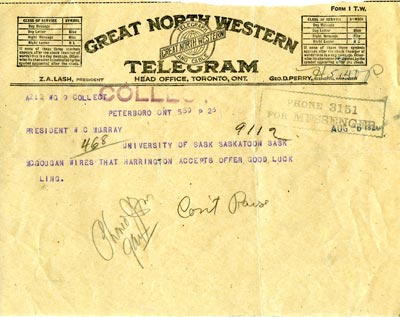 FORM 1 T.W.
CLASS OF SERVICE SYMBOL
Day Message
Day Letter Blue
Night Message Nite
Night Letter N L
If none of these three symbols
appears after the check (number of
words) this is a day message. Other-
wise its character is indicated by the
symbol appearing after the check.
GREAT NORTH WESTERN
TELEGRAM
Z.A. LASH, PRESIDENT
HEAD OFFICE, TORONTO, ONT.
GEO. D. PERRY,
CLASS OF SERVICE SYMBOL
Day Message
Day Letter Blue
Night Message Nite
Night Letter N L
If none of these three symbols
appears after the check (number of
words) this is a day message. Other-
wise its character is indicated by the
symbol appearing after the check.
COLLECT
A212 WG 9 COLLECT
PETERBORO ONT 539 P 26
PHONE 3151
FOR MESSENGER
AUG
PRESIDENT W C MURRAY
468
9112
UNIVERSITY OF SASK SASKATOON SASK
MCGOUGAN WIRES THAT HARRINGTON ACCEPTS OFFER GOOD LUCK
LING.
Can't Raise